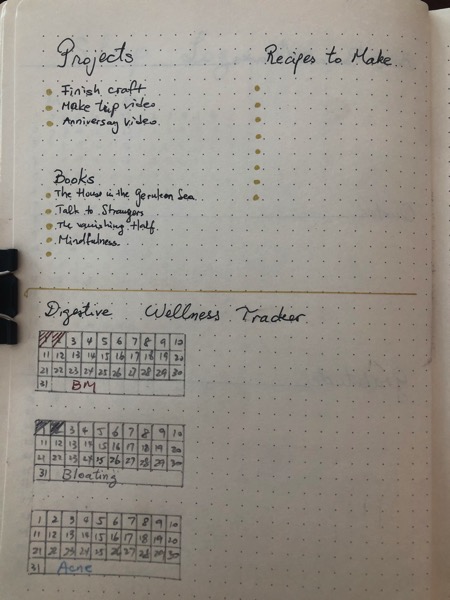 Projects
Finish craft
Make trip video
Anniversary video
Recipes to Make
Books
The House in the Cerulean Sea
Talk to Strangers
The Vanishing Half
Mindfulness
Digestive Wellness Tracker
3 4 5 6 7 8 9 10
11 12 13 14 15 16 17 18 19 20
21 22 23 24 25 26 27 28 29 30
31 BM
3 4 5 6 7 8 9 10
11 12 13 14 15 16 17 18 19 20
21 22 23 24 25 26 27 28 29 30
31 Bloating
1 2 3 4 5 6 7 8 9 10
11 12 13 14 15 16 17 18 19 20
21 22 23 24 25 26 27 28 29 30
31 Acne